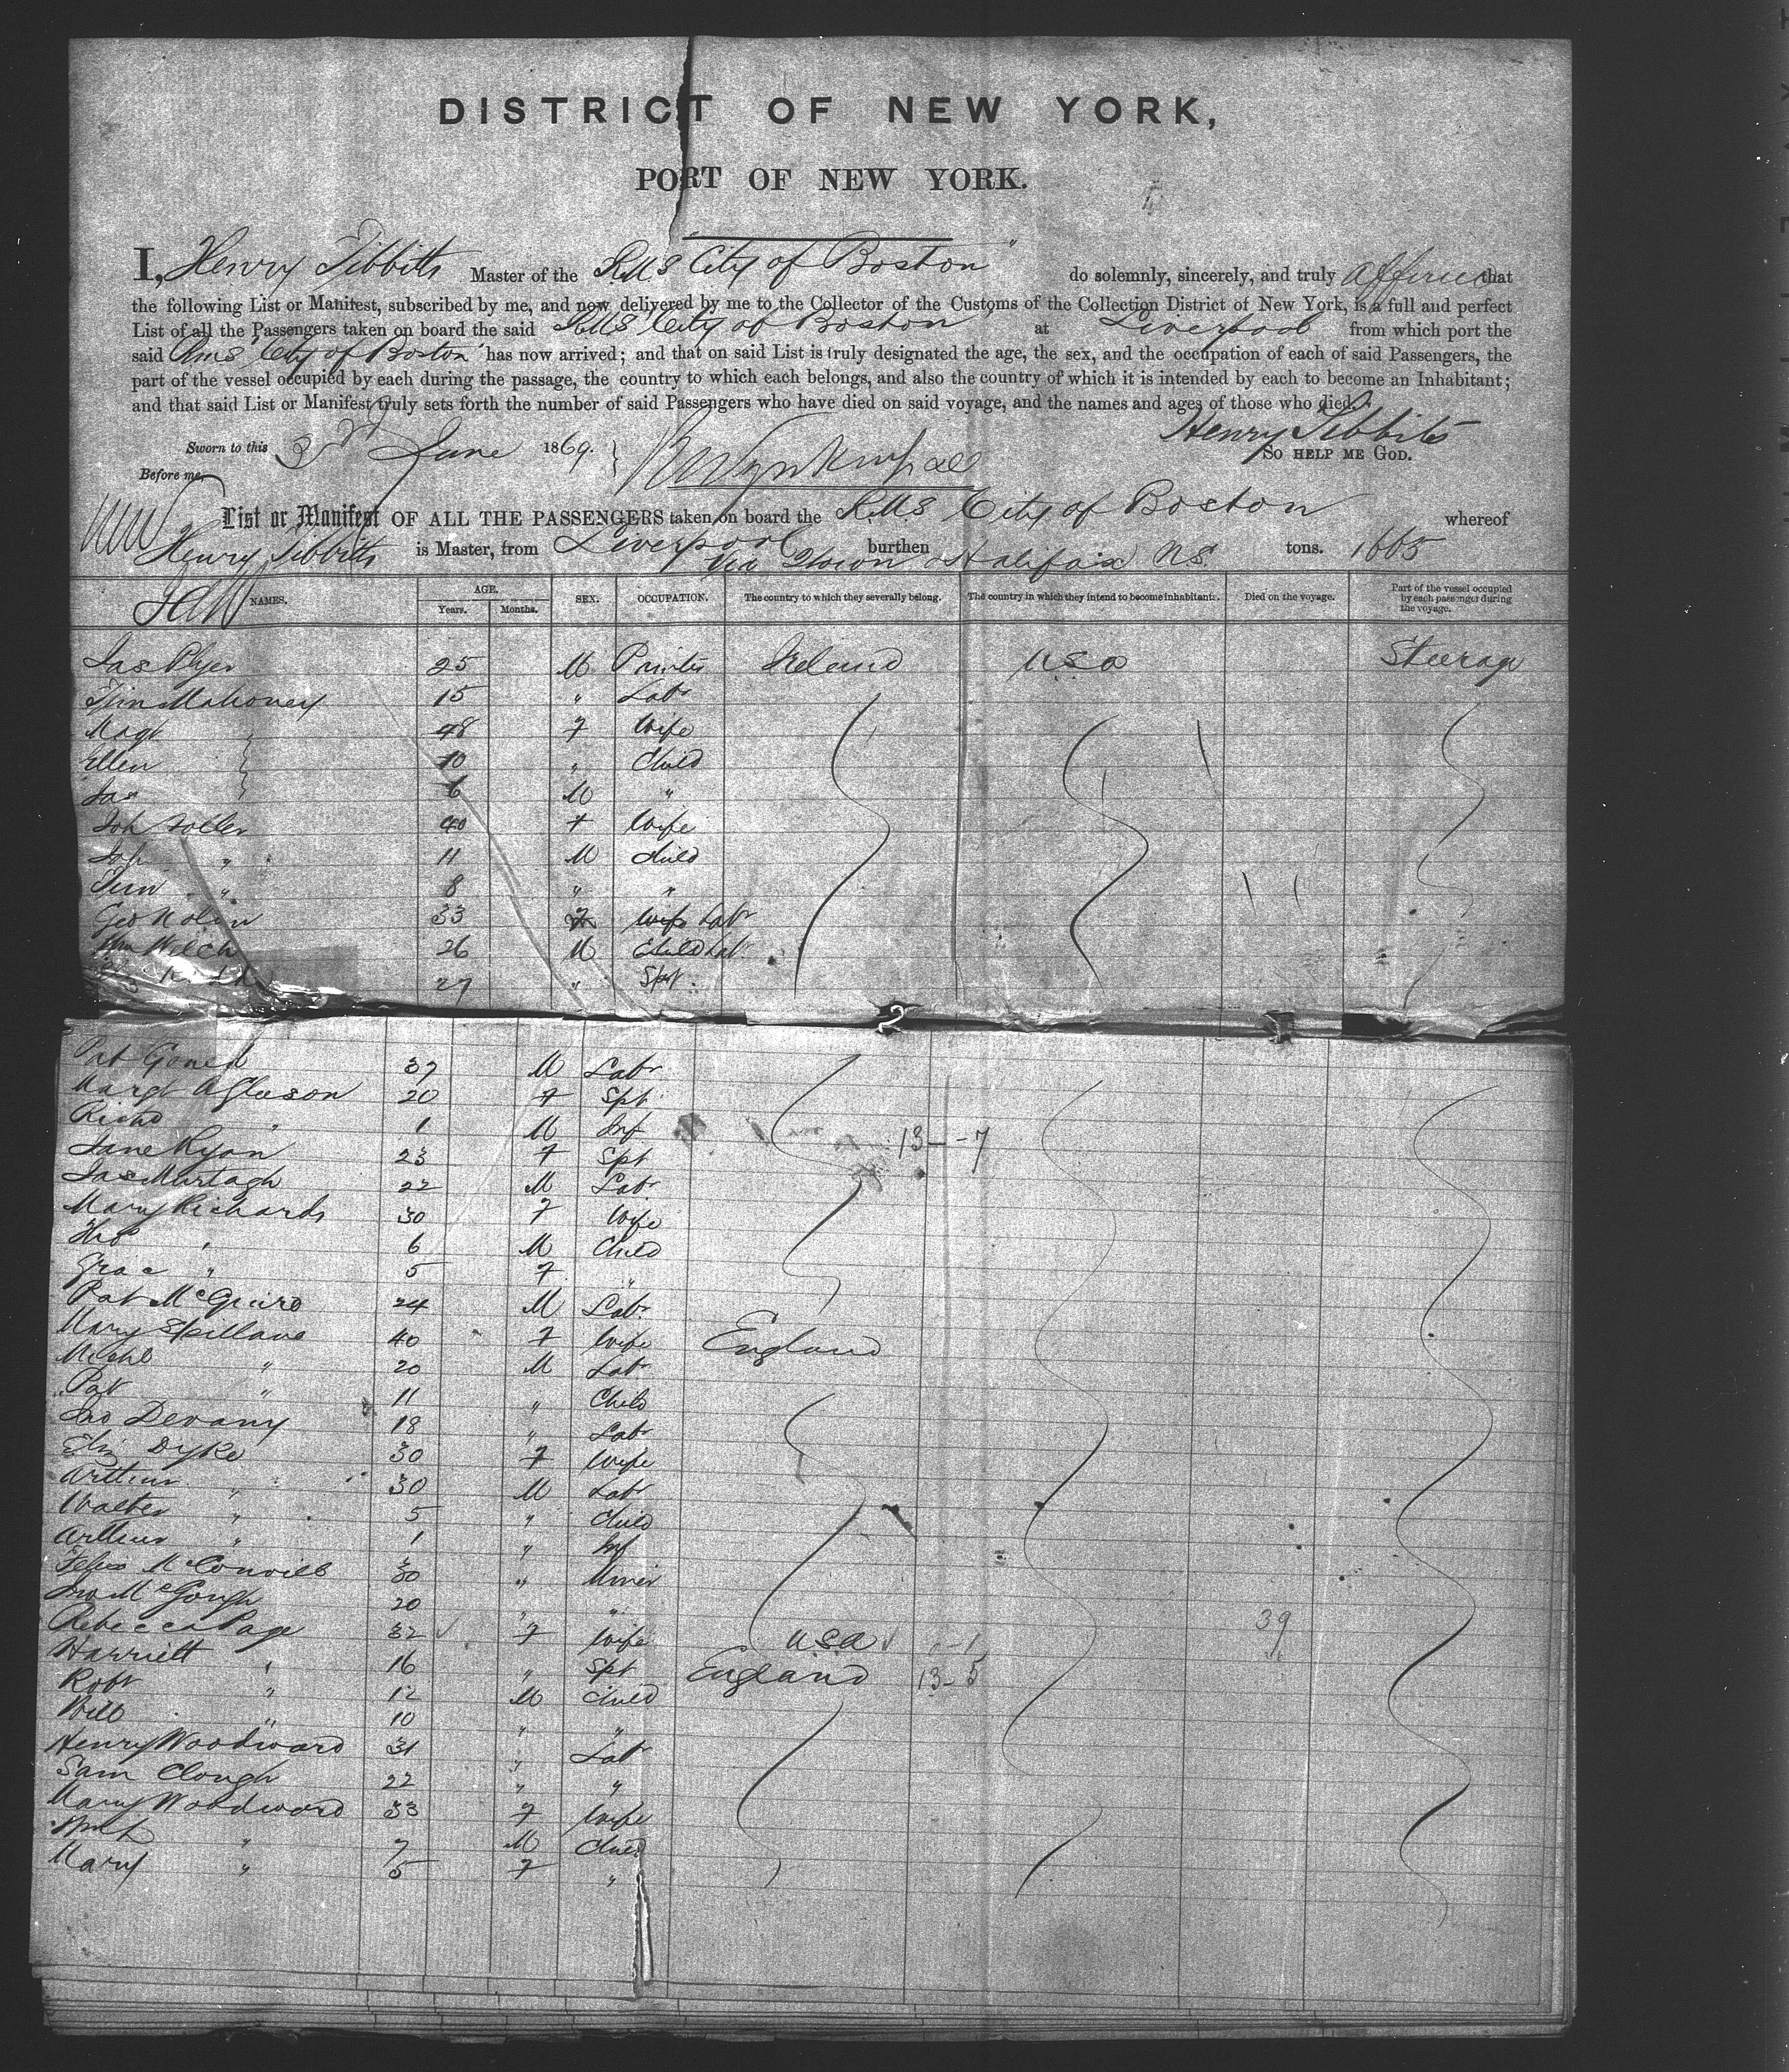 DISTRICT OF NEW YORK,
PORT OF NEW YORK.
I, Henry Tibbitts Master of the RMS "City of Boston" do solemnly, sincerely, and truly affirm that
the following List or Manifest, subscribed by me, and now delivered by me to the Collector of the Customs of the Collection District of New York, is a full and perfect
List of all the Passengers taken on board the said RMS City of Boston at Liverpool from which port the
said RMS "City of Boston" has now arrived; and that on said List is truly designated the age, the sex, and the occupation of each of said Passengers, the
part of the vessel occupied by each during the passage, the country to which each belongs, and also the country of which it is intended by each to become an Inhabitant;
and that said List or Manifest truly sets forth the number of said Passengers who have died on said voyage, and the names and ages of those who died.
Henry Tibbitts
Sworn to this 3rd June 1869.
So HELP ME GOD.
Before me,
List or Manifest OF ALL THE PASSENGERS taken on board the RMS City of Boston whereof
Henry Tibbitts is Master, from Liverpool burthen tons. 1665
via Halifax NS.
NAMES. AGE. Years. Months. SEX. OCCUPATION. The country to which they severally belong. The country in which they intend to become inhabitants. Died on the voyage. Part of the vessel occupied by each passenger during the voyage.
Jas 25 M Printer Ireland USA Steerage
Tim Mahoney 15 " Labr
Magt 48 F Wife
Ellen 10 " Child
Jas 6 M "
Joh 40 F Wife
Joh " 11 M Child
" 8 " "
Geo Nolin 33 F Wife Labr
Wm Welch 26 M Child Lab.
27 " Spt
2
Pat 37 M Labr
Margt A Gleeson 20 F Spt
Richd " 1 M Inf 13--7
Jane Ryan 23 F Spt
Jas Murtagh 22 M Labr
Mary Richards 30 F Wife
Thos " 6 M Child
Grace " 5 F "
Pat McGuire 24 M Labr
Mary Spillane 40 F Wife England
Michl " 20 M Labr
Pat " 11 " Child
Jno Devany 18 " Labr
Eliz Dyke 30 F Wife
Arthur " 30 M Labr
Walter " 5 " Child
Arthur " 1 " Inf
Felix McConvill 30 " Miner
Jno McGough 20 " "
Rebecca Page 32 F Wife USA 39
Harriett " 16 " Spt England 13-5
Robt " 12 M Child
Will " 10 " "
Henry Woodward 31 " Labr
Sam Clough 22 " "
Mary Woodward 33 F Wife
" 7 M Child
Mary " 5 F "